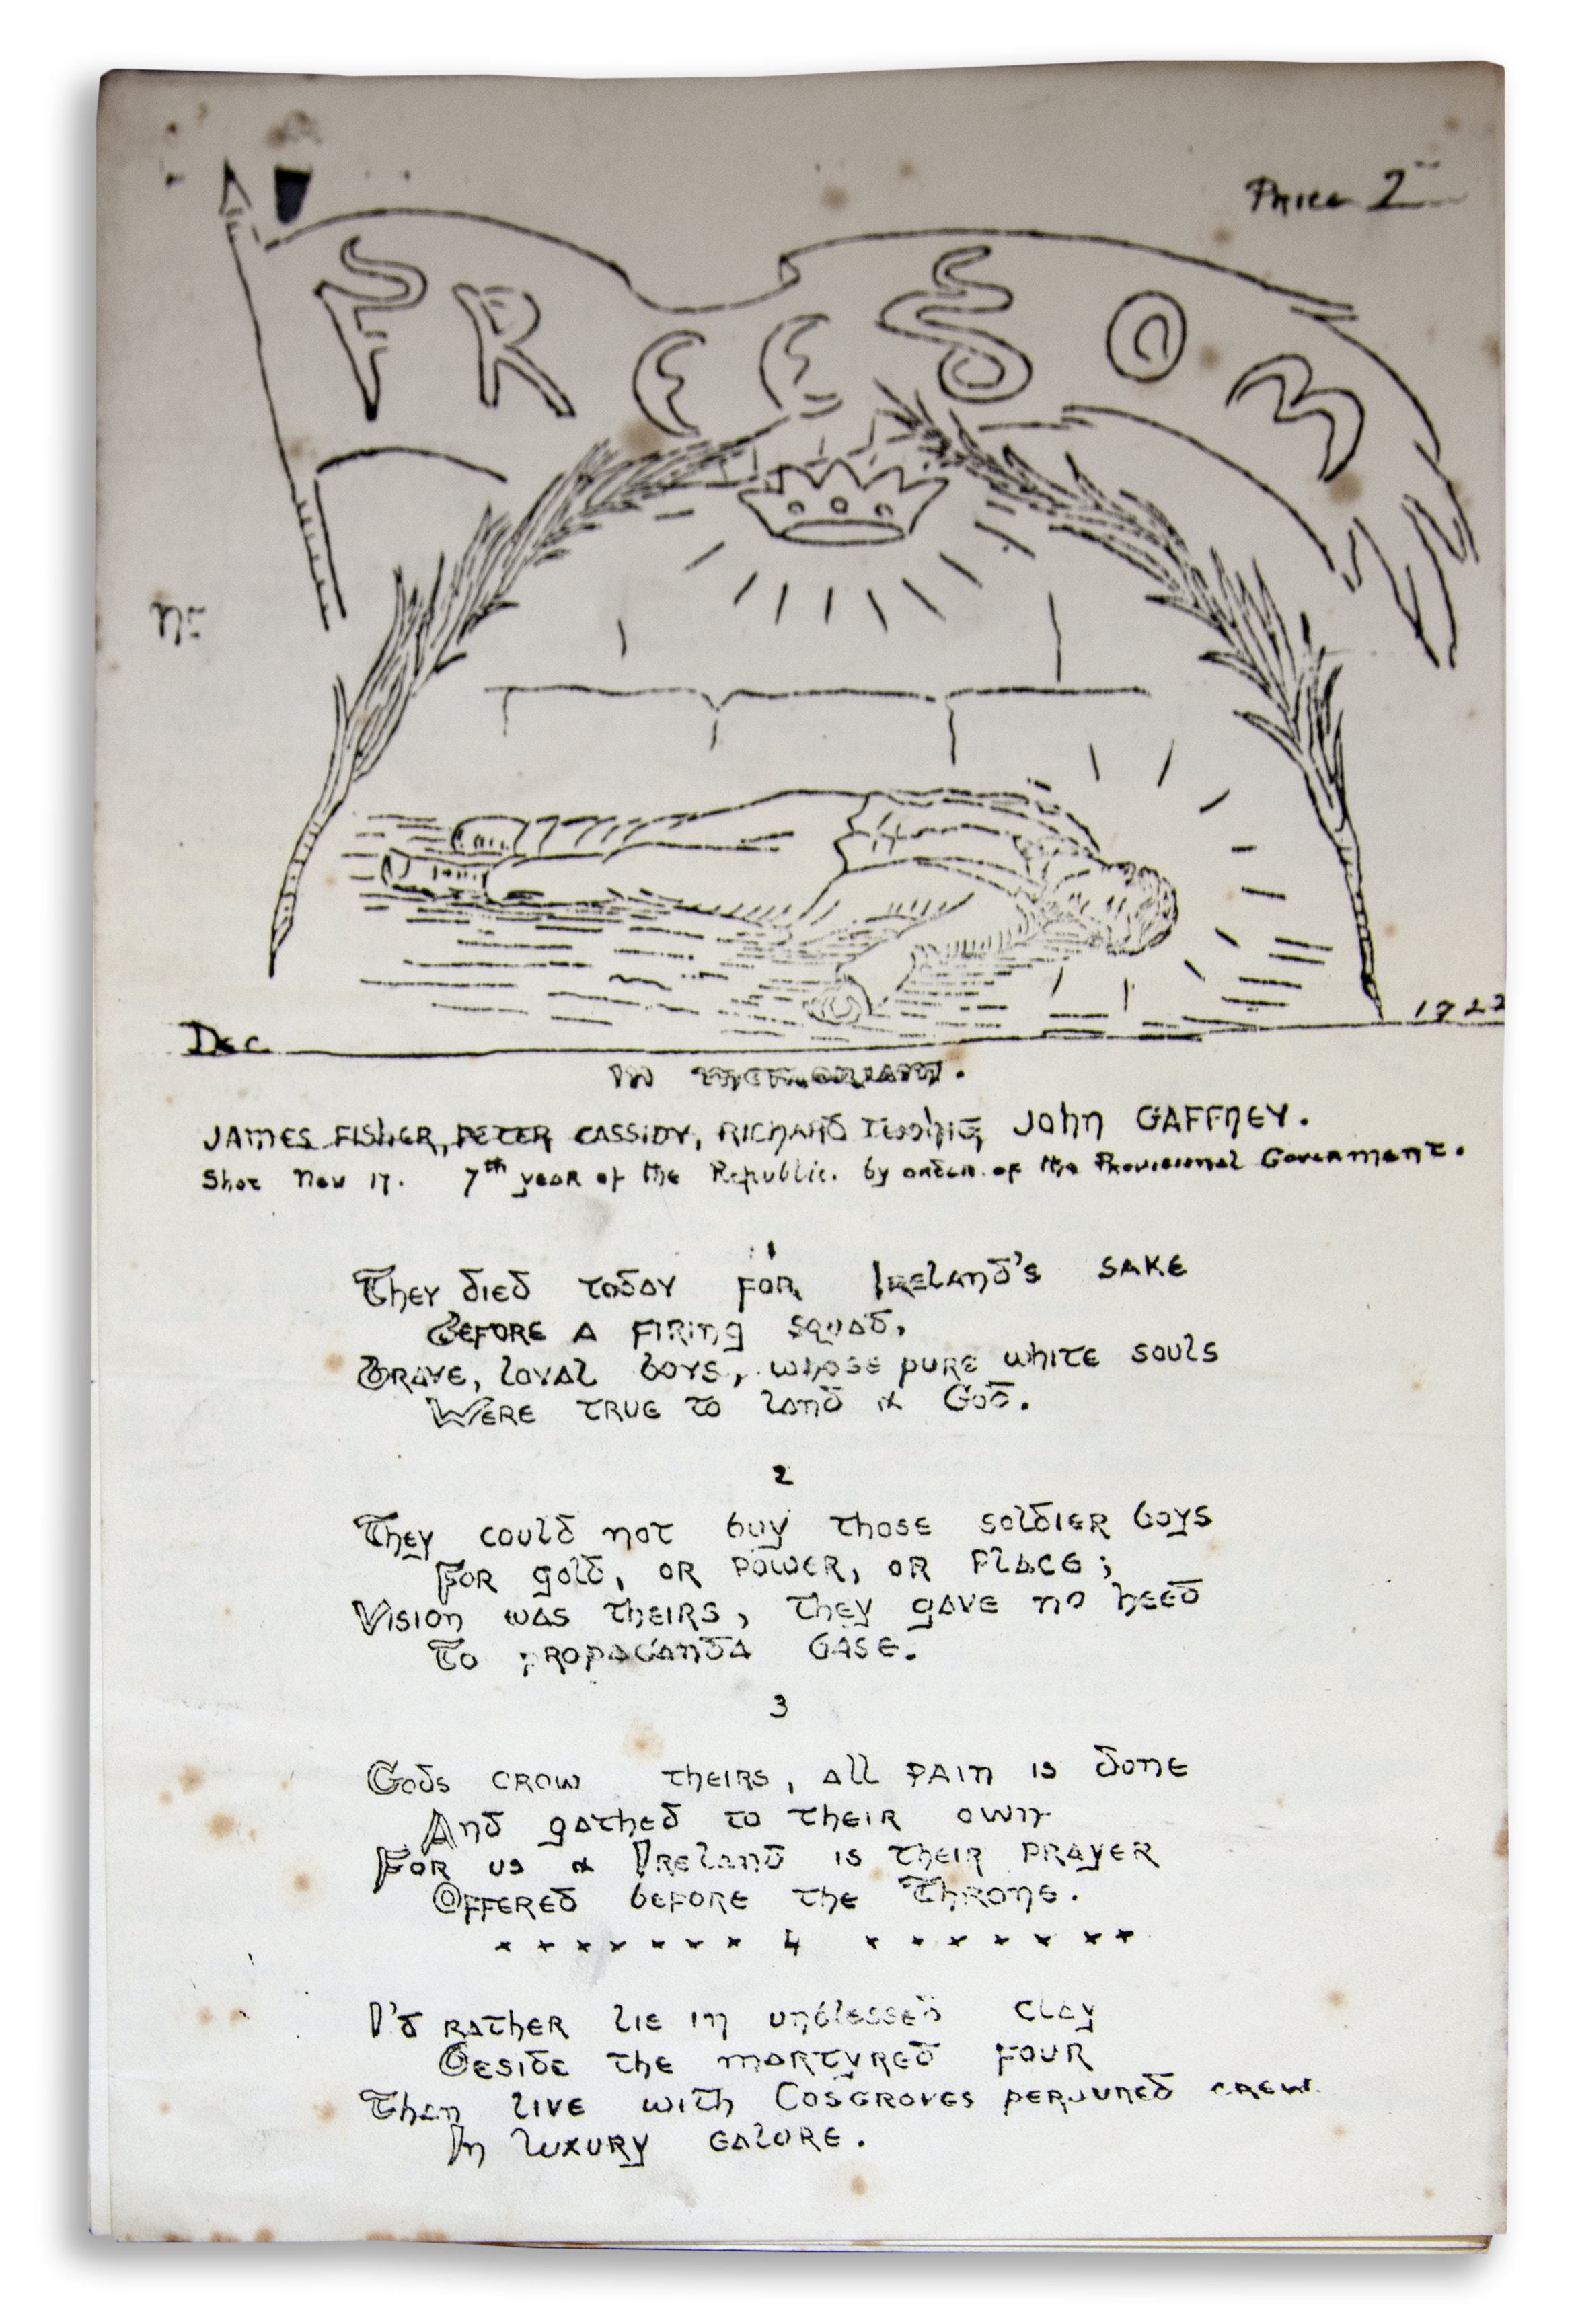 Price 2
FREEDOM
No
Dec. 1922
IN MEMORIAM.
JAMES FISHER, PETER CASSIDY, RICHARD TWOHIG, John GAFFNEY.
Shot Nov 17. 7th year of the Republic. by order of the Provisional Government.
1
They died today for Ireland's sake
Before a firing squad,
Brave, loyal boys, whose pure white souls
Were true to land & God.
2
They could not buy those soldier boys
For gold, or power, or place;
Vision was theirs, they gave no heed
To propaganda base.
3
Gods crow theirs, all pain is done
And gathed to their own
For us & Ireland is their prayer
Offered before the Throne.
× × × × × × × 4 × × × × × × ×
I'd rather lie in unblessed clay
Beside the martyred four
Than live with Cosgroves perjured crew
In luxury galore.